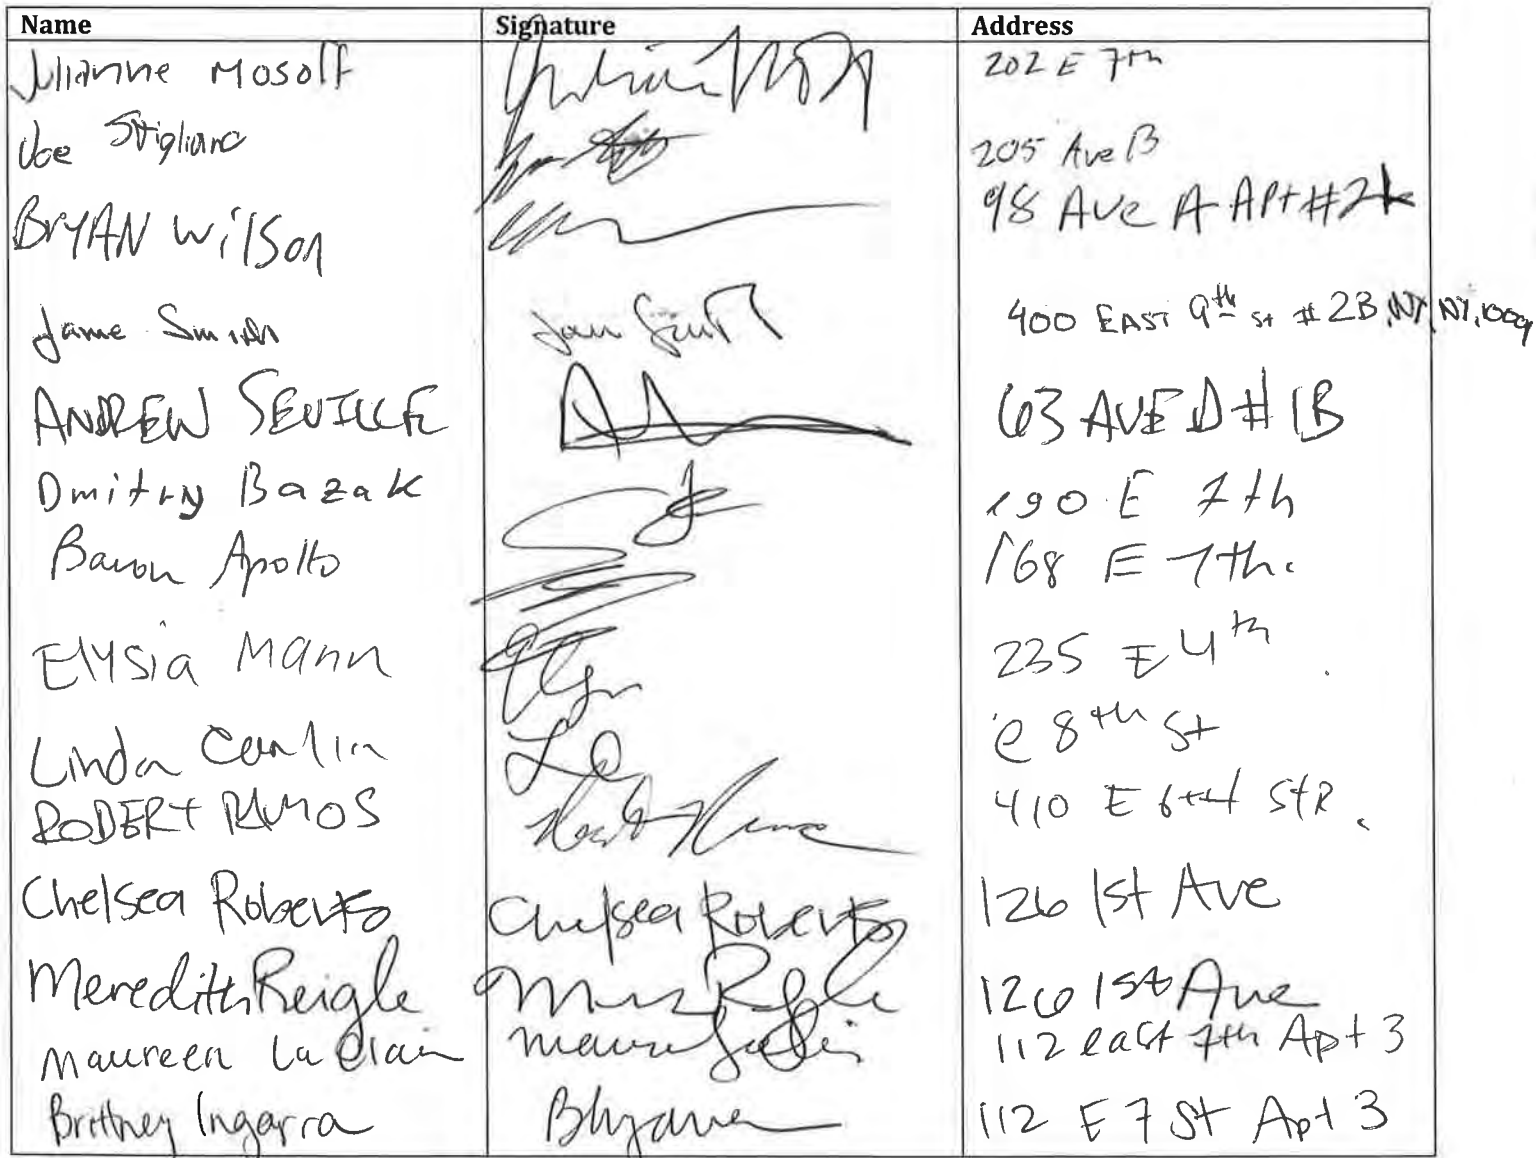 Name Signature Address
Julianne Mosoff 202 E 7th
Joe Stigliano 205 Ave B
BRYAN WilSon 98 AVe A APt #2k
Jame Smith 400 EAST 9th St #2B, NY, NY, 1009
ANDREW SEVILLE 63 AVE D #1B
Dmitry Bazak 190 E 7th
Baron Apollo 168 E 7th.
Elysia Mann 235 E 4th
Linda Conlin LC e 8th St
RODERT RAMOS 410 E 6tH StR.
Chelsea Roberts Chelsea Roberts 126 1st Ave
Meredith Reigle 126 1st Ave
Maureen 112 east 7th Apt 3
Brittney Ingarra 112 E 7 St Apt 3